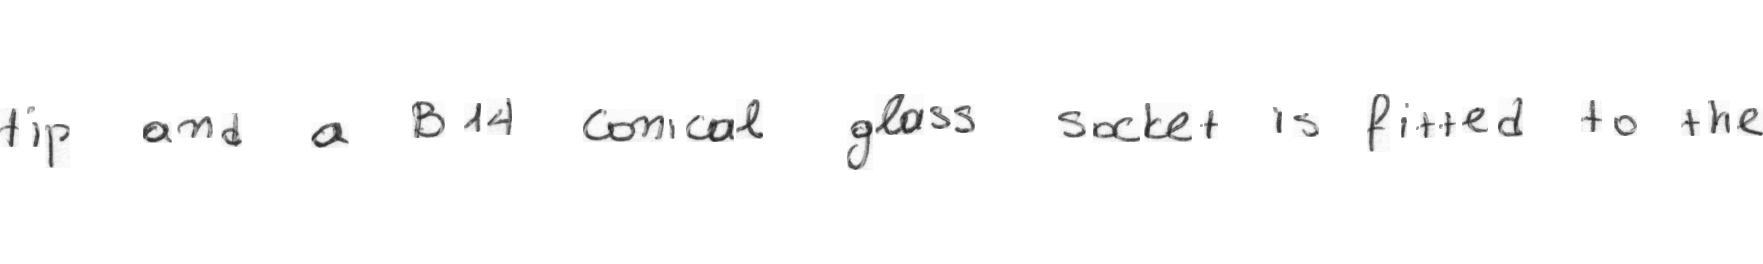 tip and a B14 conical glass socket is fitted to the